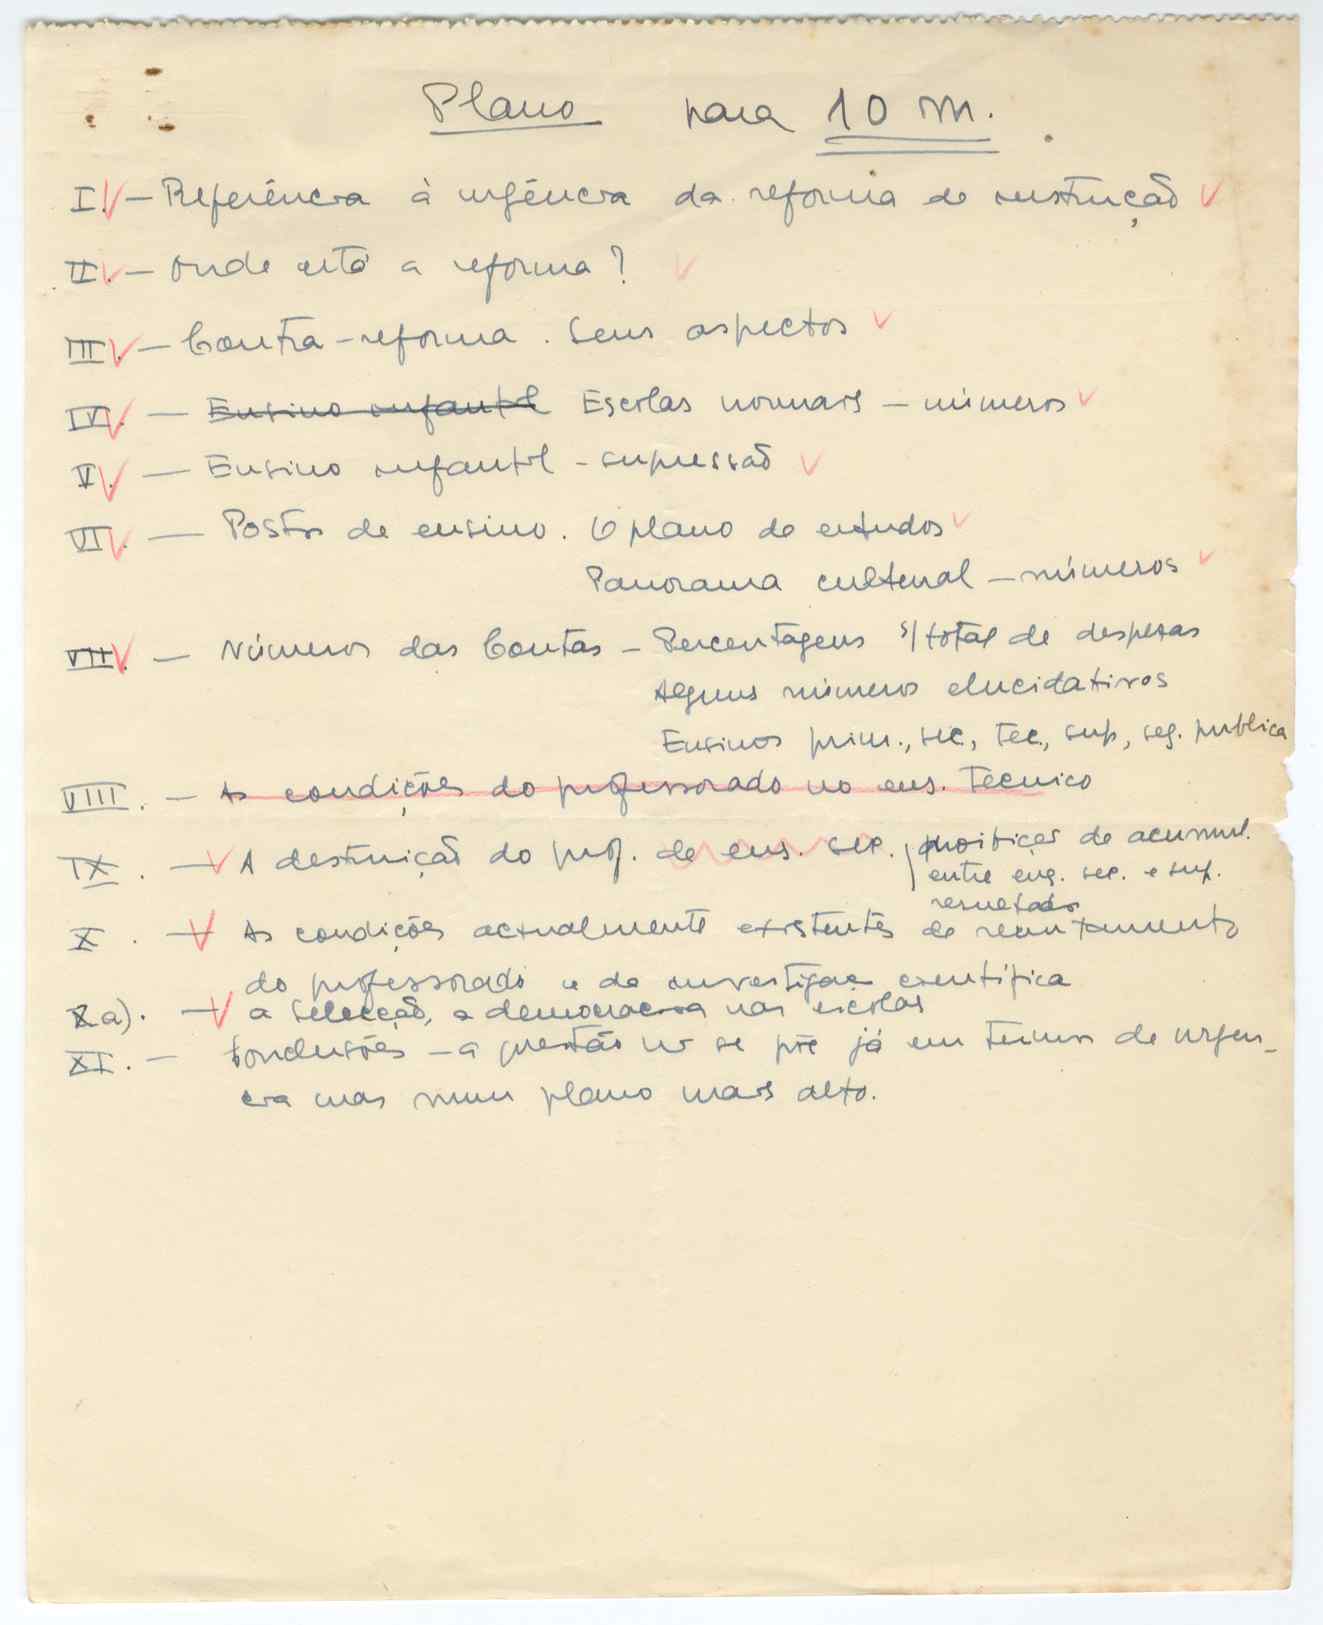 Plano para 10 m.
I. - Referência à urgência da reforma de instrução
II. - Onde está a reforma?
III. - Contra-reforma. Seus aspectos
IV. - Ensino infantil Escolas normais - números
V. - Ensino infantil - supressão
VI. - Postos de ensino. O plano de estudos
Panorama cultural - números
VII. - Números das Contas - Percentagens s/ total de despesas
Alguns números elucidativos
Ensinos prim., sec., tec., sup., seg. publica
VIII. - As condições do professorado no ens. técnico
IX. - A destruição do prof. de ens. sec., proibições de acumul.
entre ens. sec. e sup.
resultados
X. - As condições actualmente existentes de recrutamento
do professorado e da investigaç científica
Xa). - a selecção, a democracia nas escolas
XI. - Conclusões - a questão não se põe já em termos de urgên-
cia mas num plano mais alto.